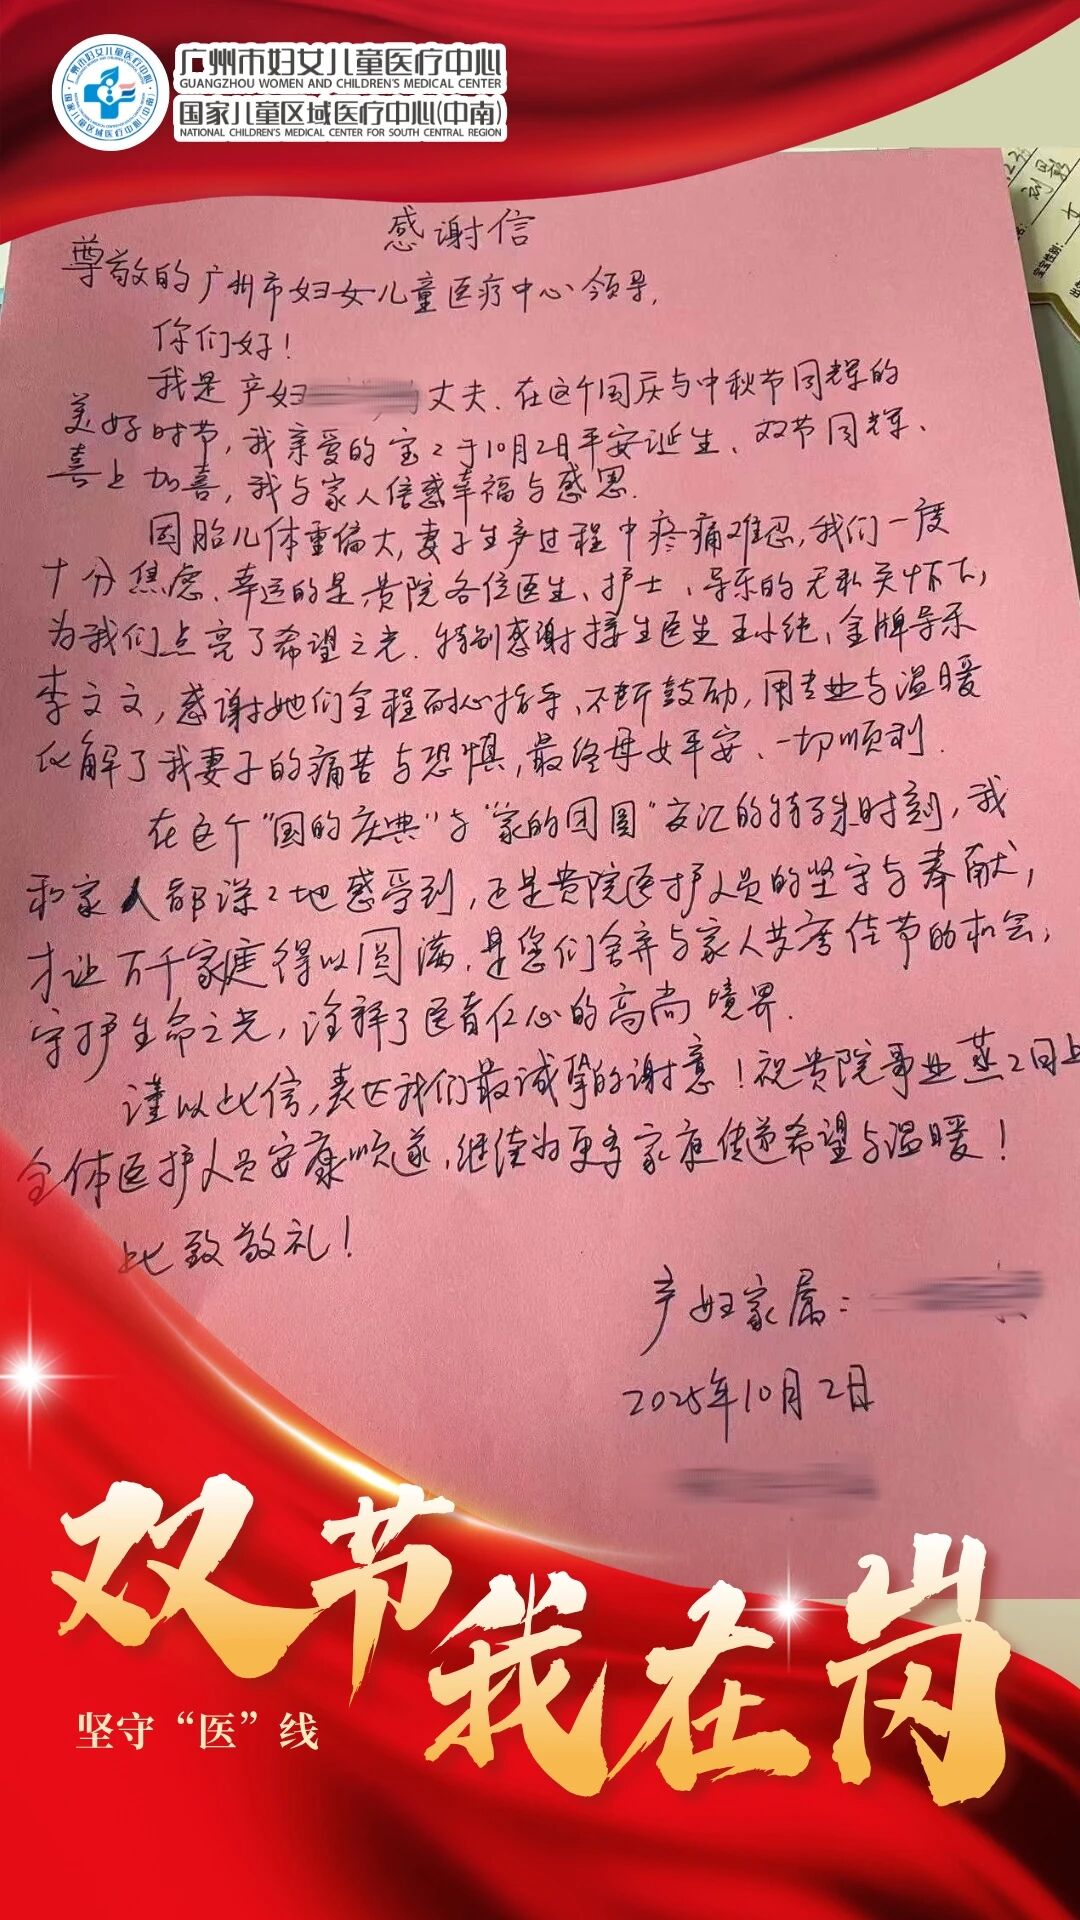 广州市妇女儿童医疗中心
GUANGZHOU WOMEN AND CHILDREN'S MEDICAL CENTER
国家儿童区域医疗中心(中南)
NATIONAL CHILDREN'S MEDICAL CENTER FOR SOUTH CENTRAL REGION
感谢信
尊敬的广州市妇女儿童医疗中心领导,
你们好!
我是产妇 丈夫.在这个国庆与中秋节同辉的
美好时节,我亲爱的宝々于10月2日平安诞生、双节同辉、
喜上加喜,我与家人倍感幸福与感恩.
因胎儿体重偏大,妻子生产过程中疼痛难忍,我们一度
十分焦虑.幸运的是贵院各位医生、护士、导乐的无私关怀下,
为我们点亮了希望之光.特别感谢接生医生王小艳、金牌导乐
李文文,感谢她们全程耐心指导、不断鼓励,用专业与温暖
化解了我妻子的痛苦与恐惧,最终母女平安、一切顺利.
在这个"国的庆典"与"家的团圆"交汇的特殊时刻,我
和家人都深々地感受到,正是贵院医护人员的坚守与奉献,
才让万千家庭得以圆满.是您们舍弃与家人共度佳节的机会,
守护生命之光,诠释了医者仁心的高尚境界.
谨以此信,表达我们最诚挚的谢意!祝贵院事业蒸々日上
全体医护人员安康顺遂,继续为更多家庭传递希望与温暖!
此致敬礼!
产妇家属:
2025年10月2日
双节
我在岗
坚守“医”线